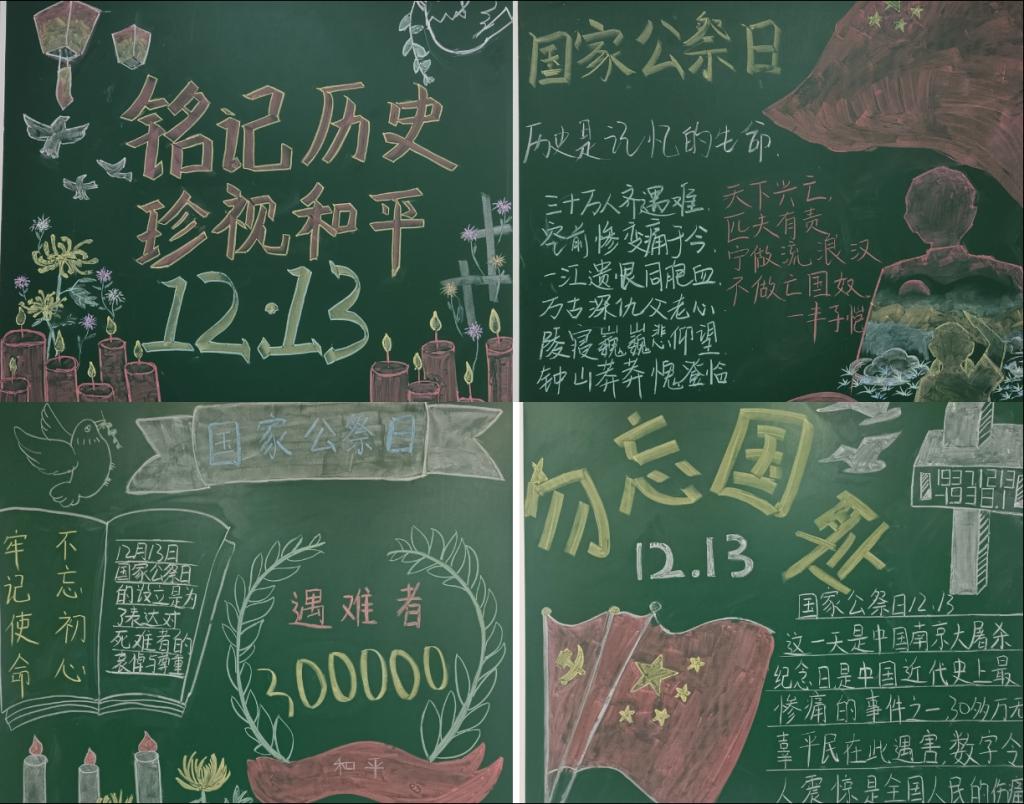 铭记历史
珍视和平
12·13
国家公祭日
历史是记忆的生命.
三十万人齐遇难
空前惨变痛于今.
一江遗恨同肥血
万古深仇父老心
陵寝巍巍悲仰望
钟山莽莽愧登临
天下兴亡,
匹夫有责
宁做流浪汉
不做亡国奴
—丰子恺
国家公祭日
不忘初心
牢记使命
12月13日
国家公祭日
的设立是为
了表达对
死难者的
哀悼与尊重
遇难者
300000
和平
勿忘国殇
12.13
国家公祭日12.13
这一天是中国南京大屠杀
纪念日是中国近代史上最
惨痛的事件之一30多万无
辜平民在此遇害,数字令
人震惊是全国人民的伤痛